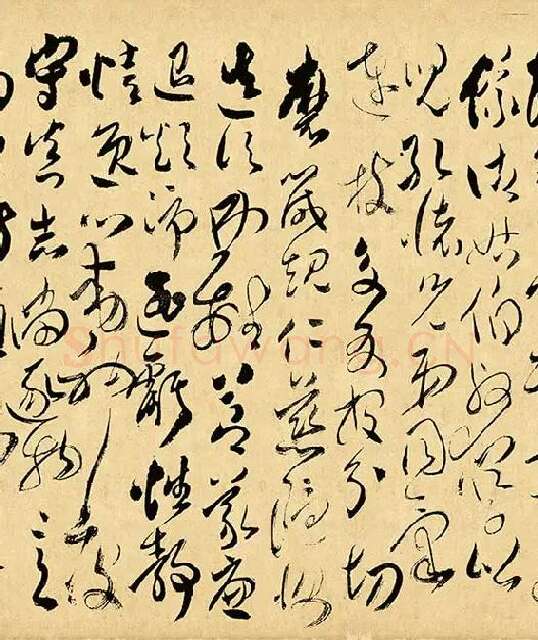 儀諸姑伯叔猶子比
兒孔懷兄弟同氣
連枝交友投分切
磨箴規仁慈隱惻
造次弗離節義廉
退顛沛匪虧性靜
情逸心動神疲
守真志滿逐物意
Shufawang.CN